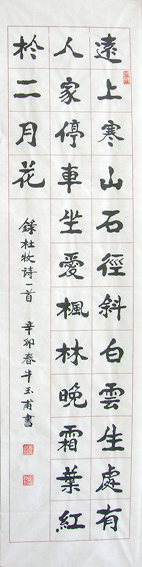 遠上寒山石徑斜白雲生處有
人家停車坐愛楓林晚霜葉紅
於二月花
錄杜牧诗一首 辛卯春牛玉甫書